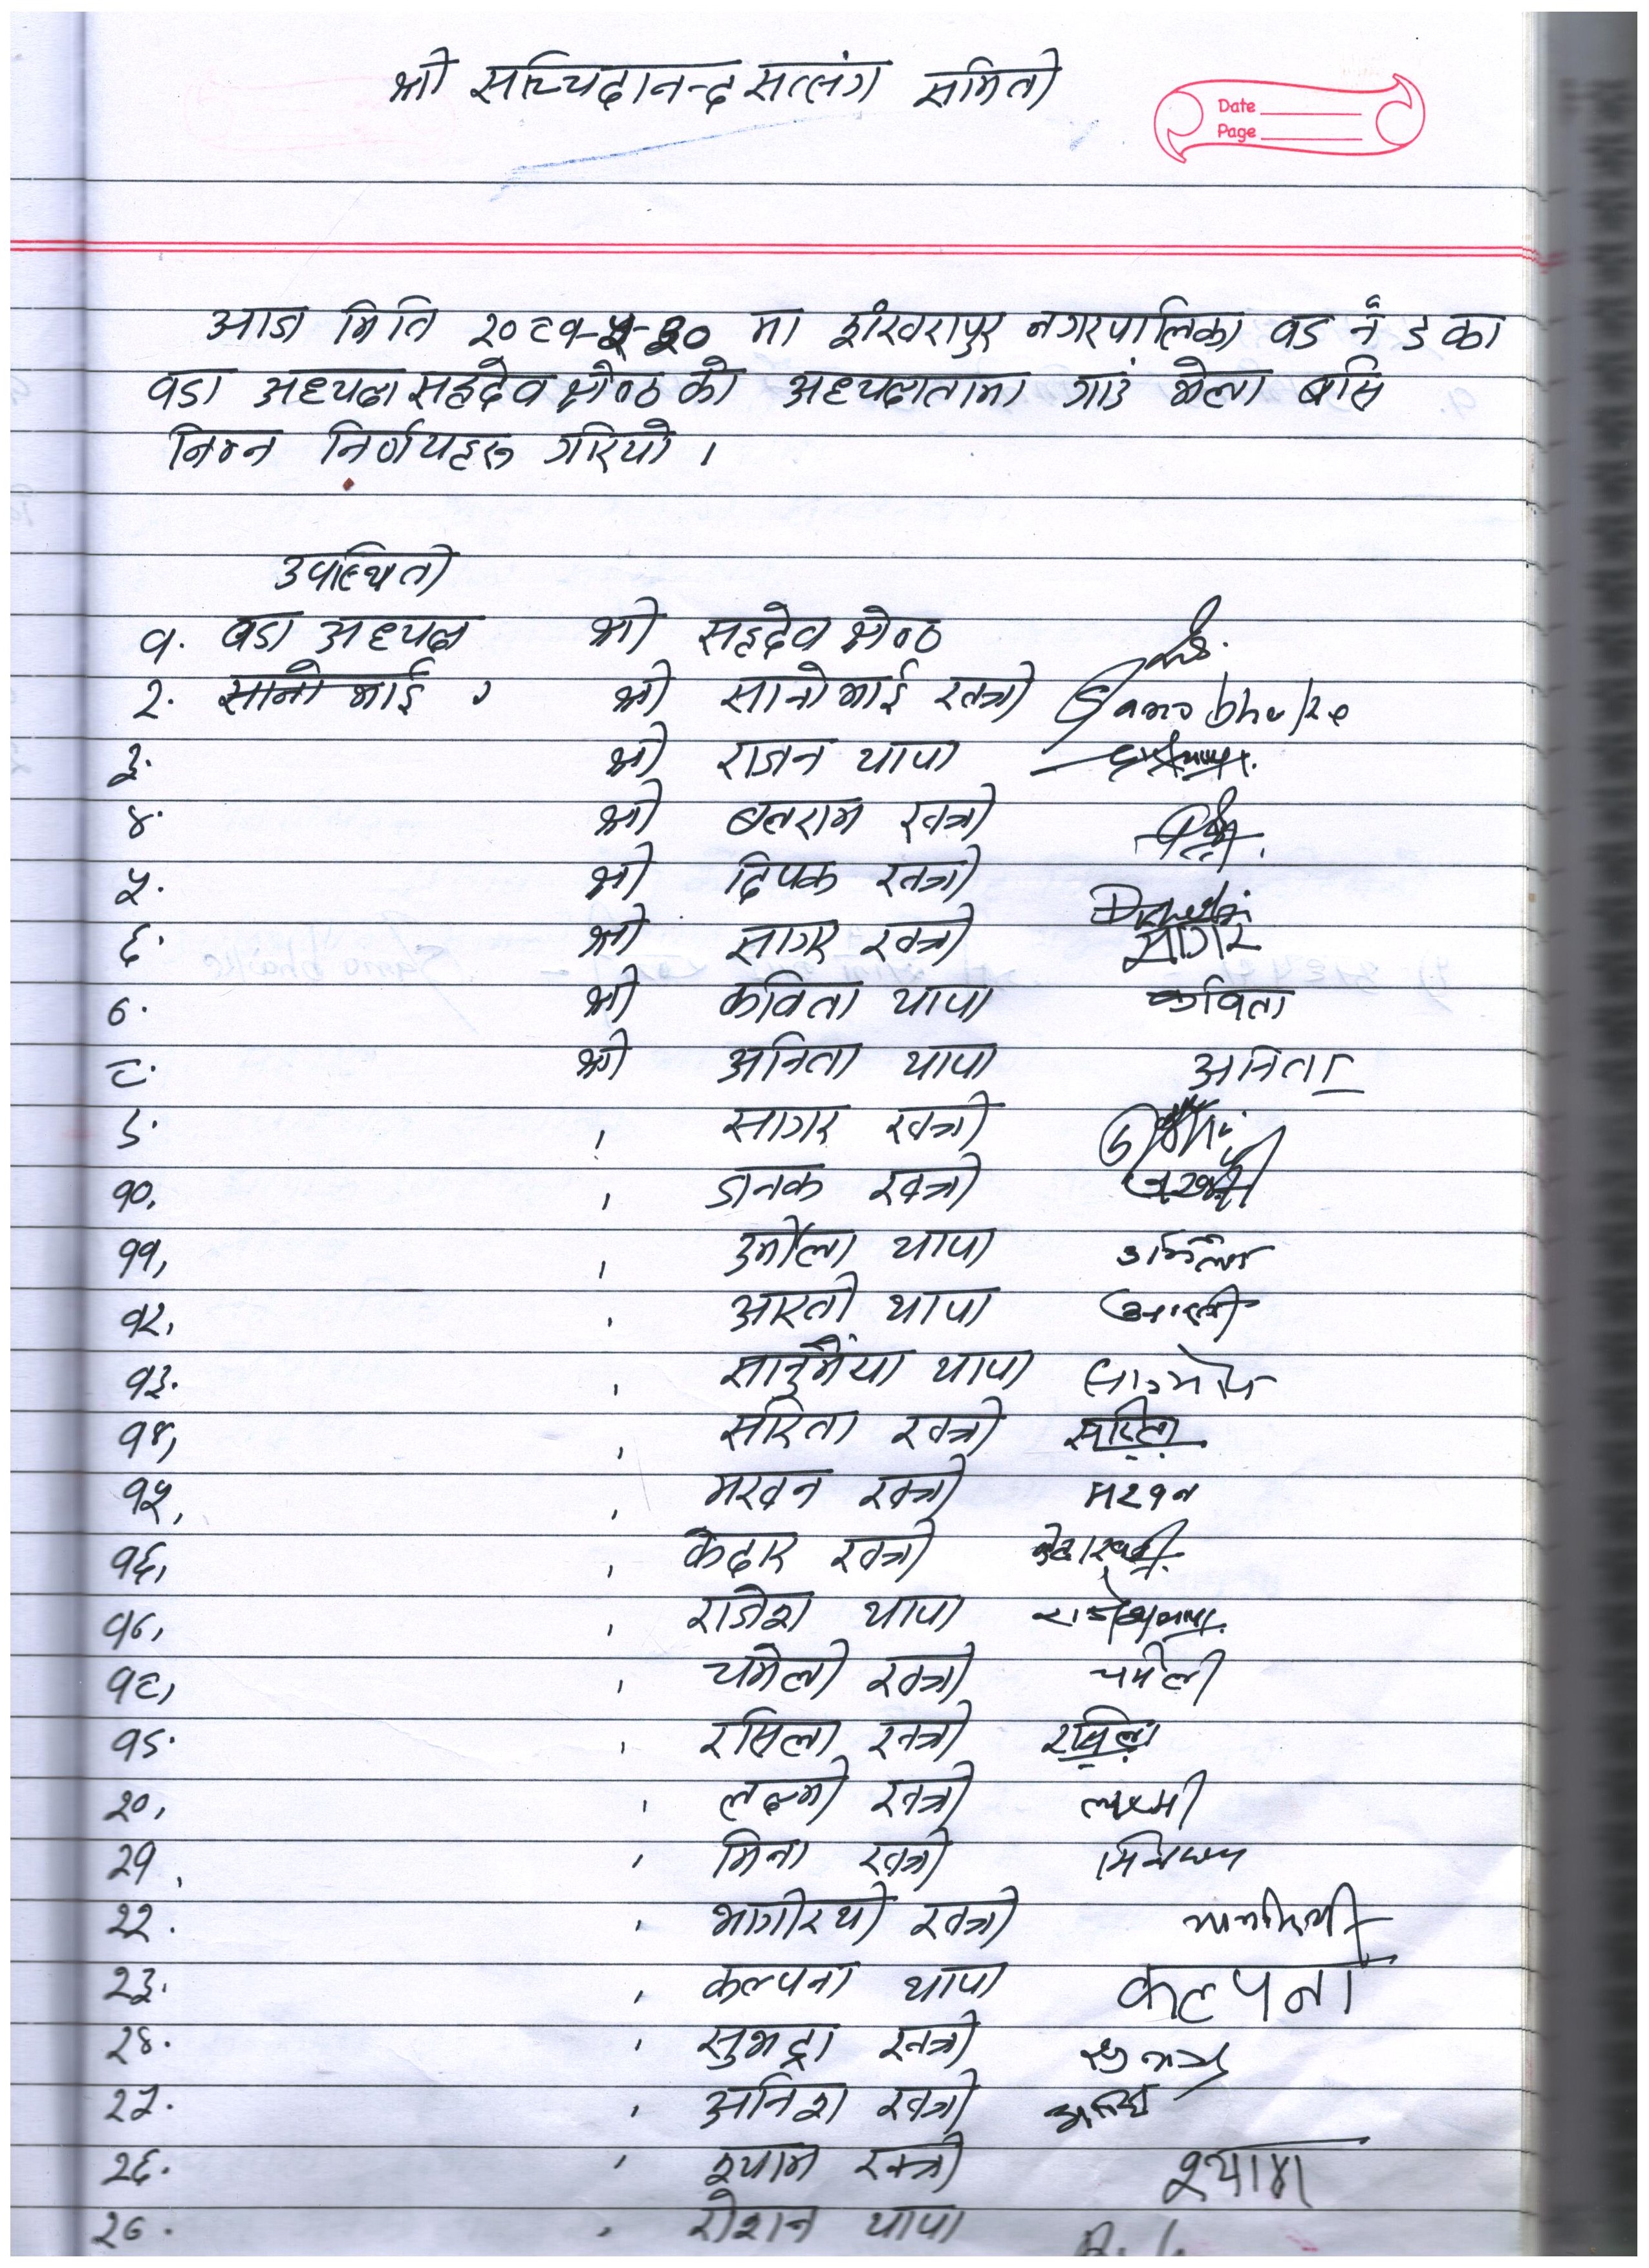 श्री सच्चिदानन्द सत्संग समिती
Date
Page
आज मिति २०८१-५-३० मा शंखरापुर नगरपालिका वडा नं ९ का
वडा अध्यक्ष सहदेव श्रेष्ठ को अध्यक्षतामा गाउं भेला बसि
निम्न निर्णयहरू गरियो ।
उपस्थिती
१. वडा अध्यक्ष श्री सहदेव श्रेष्ठ
२. सानो भाई , श्री सानोभाई खत्री Sanobhake
३. श्री राजन थापा
४. श्री बलराम खत्री
५. श्री दिपक खत्री
६. श्री सागर खत्री सागर
७. श्री कविता थापा कविता
८. श्री अनिता थापा अनिता
९. , सागर खत्री
१०, , जनक खत्री
११, , उर्मीला थापा उर्मिला
१२, , आरती थापा आरती
१३. , सानुमैया थापा
१४, , सरिता खत्री सरिता
१५, , मखन खत्री मखन
१६, , केदार खत्री
१७, , राजेश थापा राजेश थापा
१८, , चमेली खत्री चमेली
१९. , रसिला खत्री रसिला
२०, , लक्ष्मी खत्री लक्ष्मी
२१, , मिना खत्री
२२. , भागीरथी खत्री भागीरथी
२३. , कल्पना थापा कल्पना
२४. , सुभद्रा खत्री
२५. , अनिश खत्री
२६. , श्याम खत्री श्याम
२७. , रोशान थापा